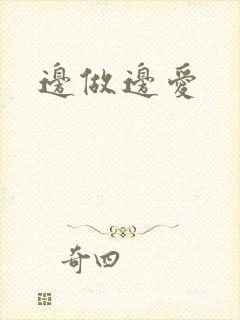 邊做邊愛
奇四